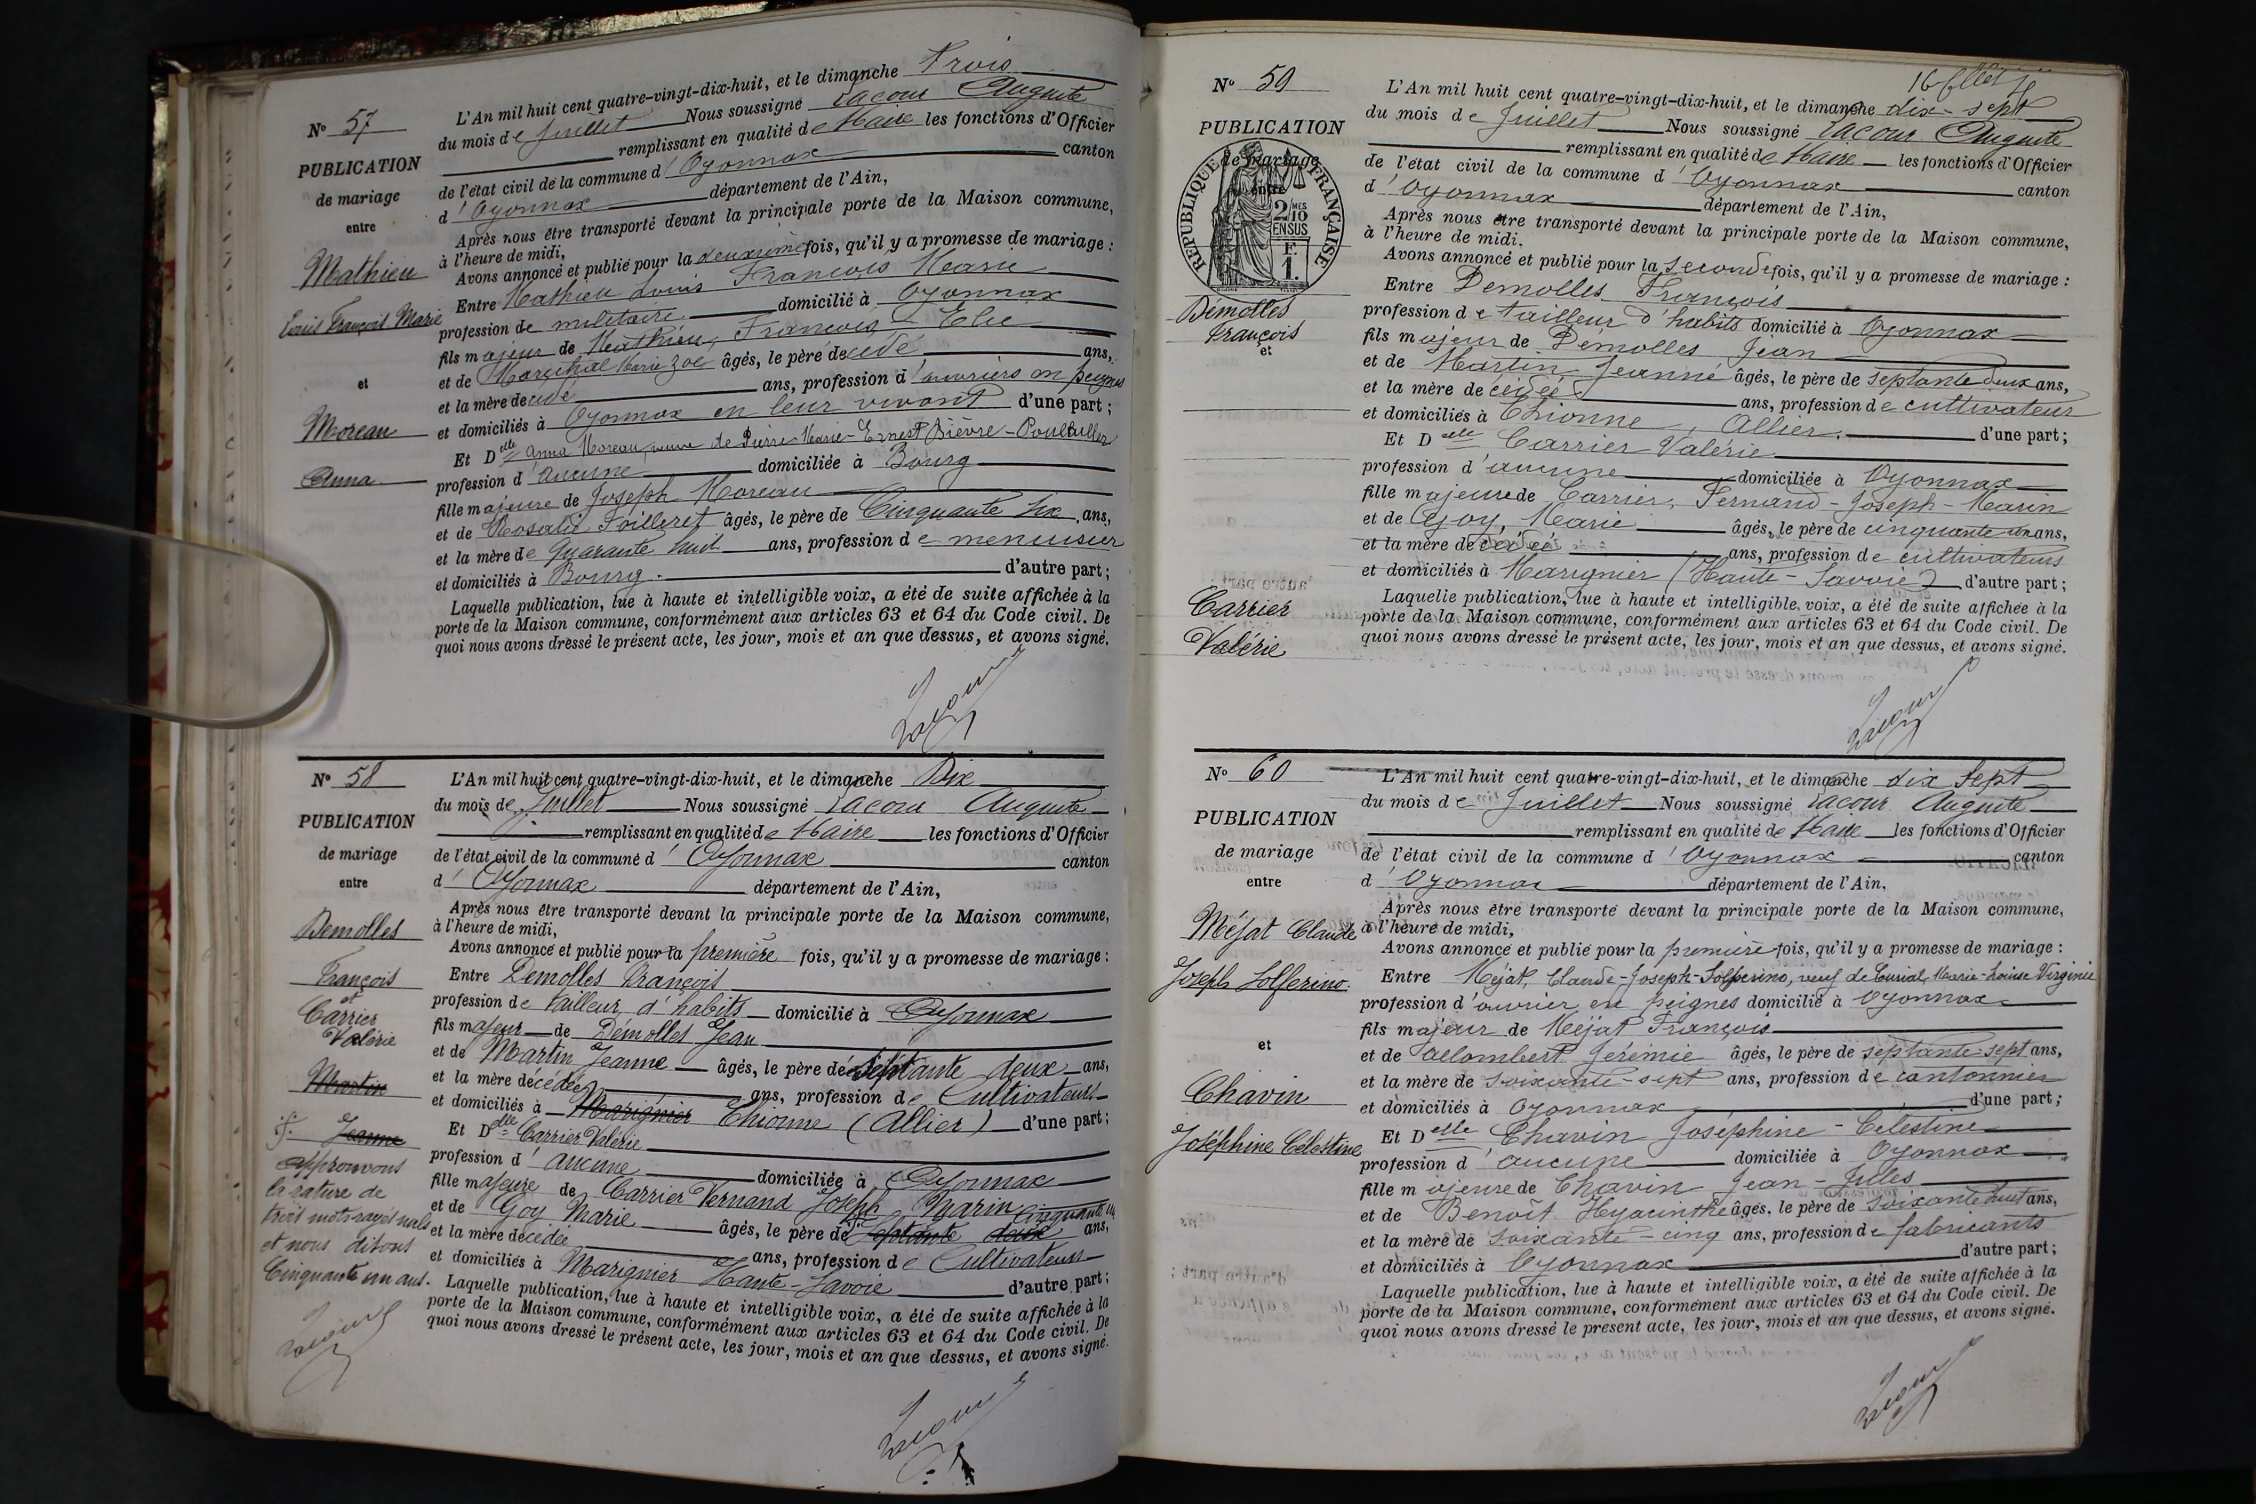 N° 57
PUBLICATION
de mariage
entre
Mathieu
Louis François Marie
et
Moreau
Anna
L'An mil huit cent quatre-vingt-dix-huit, et le dimanche Trois
du mois de Juillet Nous soussigné Lacour Auguste
remplissant en qualité de Maire les fonctions d'Officier
de l'état civil de la commune d'Oyonnax canton
d'Oyonnax département de l'Ain,
Après nous être transporté devant la principale porte de la Maison commune,
à l'heure de midi,
Avons annoncé et publié pour la deuxième fois, qu'il y a promesse de mariage :
Entre Mathieu Louis François Marie
profession de militaire domicilié à Oyonnax
fils majeur de Mathieu, François Elie
et de Maréchal Marie Zoé âgés, le père décédé ans,
et la mère décédé ans, profession d'ouvriers en peignes
et domiciliés à Oyonnax en leur vivant d'une part ;
Et Delle Anna Moreau, veuve de Pierre-Marie-Ernest Bièvre-Poulailler
profession d'aucune domiciliée à Bourg
fille majeure de Joseph Moreau
et de Rosalie Foilleret âgés, le père de Cinquante six ans,
et la mère de quarante huit ans, profession de menuisier
et domiciliés à Bourg. d'autre part ;
Laquelle publication, lue à haute et intelligible voix, a été de suite affichée à la
porte de la Maison commune, conformément aux articles 63 et 64 du Code civil. De
quoi nous avons dressé le présent acte, les jour, mois et an que dessus, et avons signé.
Lacour
N° 58
PUBLICATION
de mariage
entre
Demolles
François
et
Carrier
Valérie
Martin
Jeanne
approuvons
la rature de
trois mots rayés nuls
et nous disons
Cinquante un ans.
Lacour
L'An mil huit cent quatre-vingt-dix-huit, et le dimanche Dix
du mois de Juillet Nous soussigné Lacour Auguste
remplissant en qualité de Maire les fonctions d'Officier
de l'état civil de la commune d'Oyonnax canton
d'Oyonnax département de l'Ain,
Après nous être transporté devant la principale porte de la Maison commune,
à l'heure de midi,
Avons annoncé et publié pour la première fois, qu'il y a promesse de mariage :
Entre Demolles François
profession de tailleur d'habits domicilié à Oyonnax
fils majeur de Démolles Jean
et de Martin Jeanne âgés, le père de Septante deux ans,
et la mère décédée ans, profession de Cultivateurs
et domiciliés à Marignier Thionne (Allier) d'une part ;
Et Delle Carrier Valérie
profession d'aucune domiciliée à Oyonnax
fille majeure de Carrier Fernand Joseph Marin
et de Goy Marie âgés, le père de Septante deux cinquante un ans,
et la mère décédée ans, profession de Cultivateurs
et domiciliés à Marignier Haute-Savoie d'autre part ;
Laquelle publication, lue à haute et intelligible voix, a été de suite affichée à la
porte de la Maison commune, conformément aux articles 63 et 64 du Code civil. De
quoi nous avons dressé le présent acte, les jour, mois et an que dessus, et avons signé.
Lacour
N° 59
PUBLICATION
de mariage
entre
RÉPUBLIQUE FRANÇAISE
2/10 MES
EN SUS
1 F.
Démolles
François
et
Carrier
Valérie
L'An mil huit cent quatre-vingt-dix-huit, et le dimanche dix-sept
du mois de Juillet Nous soussigné Lacour Auguste
remplissant en qualité de Maire les fonctions d'Officier
de l'état civil de la commune d'Oyonnax canton
d'Oyonnax département de l'Ain,
Après nous être transporté devant la principale porte de la Maison commune,
à l'heure de midi,
Avons annoncé et publié pour la seconde fois, qu'il y a promesse de mariage :
Entre Demolles François
profession de tailleur d'habits domicilié à Oyonnax
fils majeur de Démolles Jean
et de Martin Jeanne âgés, le père de septante deux ans,
et la mère décédée ans, profession de cultivateur
et domiciliés à Thionne, Allier. d'une part ;
Et Delle Carrier Valérie
profession d'aucune domiciliée à Oyonnax
fille majeure de Carrier, Fernand-Joseph-Marin
et de Goy, Marie âgés, le père de cinquante un ans,
et la mère décédée ans, profession de cultivateurs
et domiciliés à Marignier (Haute-Savoie) d'autre part ;
Laquelle publication, lue à haute et intelligible voix, a été de suite affichée à la
porte de la Maison commune, conformément aux articles 63 et 64 du Code civil. De
quoi nous avons dressé le présent acte, les jour, mois et an que dessus, et avons signé.
Lacour
N° 60
PUBLICATION
de mariage
entre
Méjat Claude
Joseph Solferino
et
Chavin
Joséphine Célestine
L'An mil huit cent quatre-vingt-dix-huit, et le dimanche dix Sept
du mois de Juillet Nous soussigné Lacour Auguste
remplissant en qualité de Maire les fonctions d'Officier
de l'état civil de la commune d'Oyonnax canton
d'Oyonnax département de l'Ain,
Après nous être transporté devant la principale porte de la Maison commune,
à l'heure de midi,
Avons annoncé et publié pour la première fois, qu'il y a promesse de mariage :
Entre Méjat, Claude-Joseph-Solferino, veuf de Curial, Marie-Louise Virginie
profession d'ouvrier en peignes domicilié à Oyonnax
fils majeur de Méjat François
et de Allombert Jérémie âgés, le père de septante-sept ans,
et la mère de soixante-sept ans, profession de cantonnier
et domiciliés à Oyonnax d'une part ;
Et Delle Chavin Joséphine-Célestine
profession d'aucune domiciliée à Oyonnax
fille majeure de Chavin Jean-Jules
et de Benoît Hyacinthe âgés, le père de soixante huit ans,
et la mère de soixante-cinq ans, profession de fabricants
et domiciliés à Oyonnax d'autre part ;
Laquelle publication, lue à haute et intelligible voix, a été de suite affichée à la
porte de la Maison commune, conformément aux articles 63 et 64 du Code civil. De
quoi nous avons dressé le présent acte, les jour, mois et an que dessus, et avons signé.
Lacour